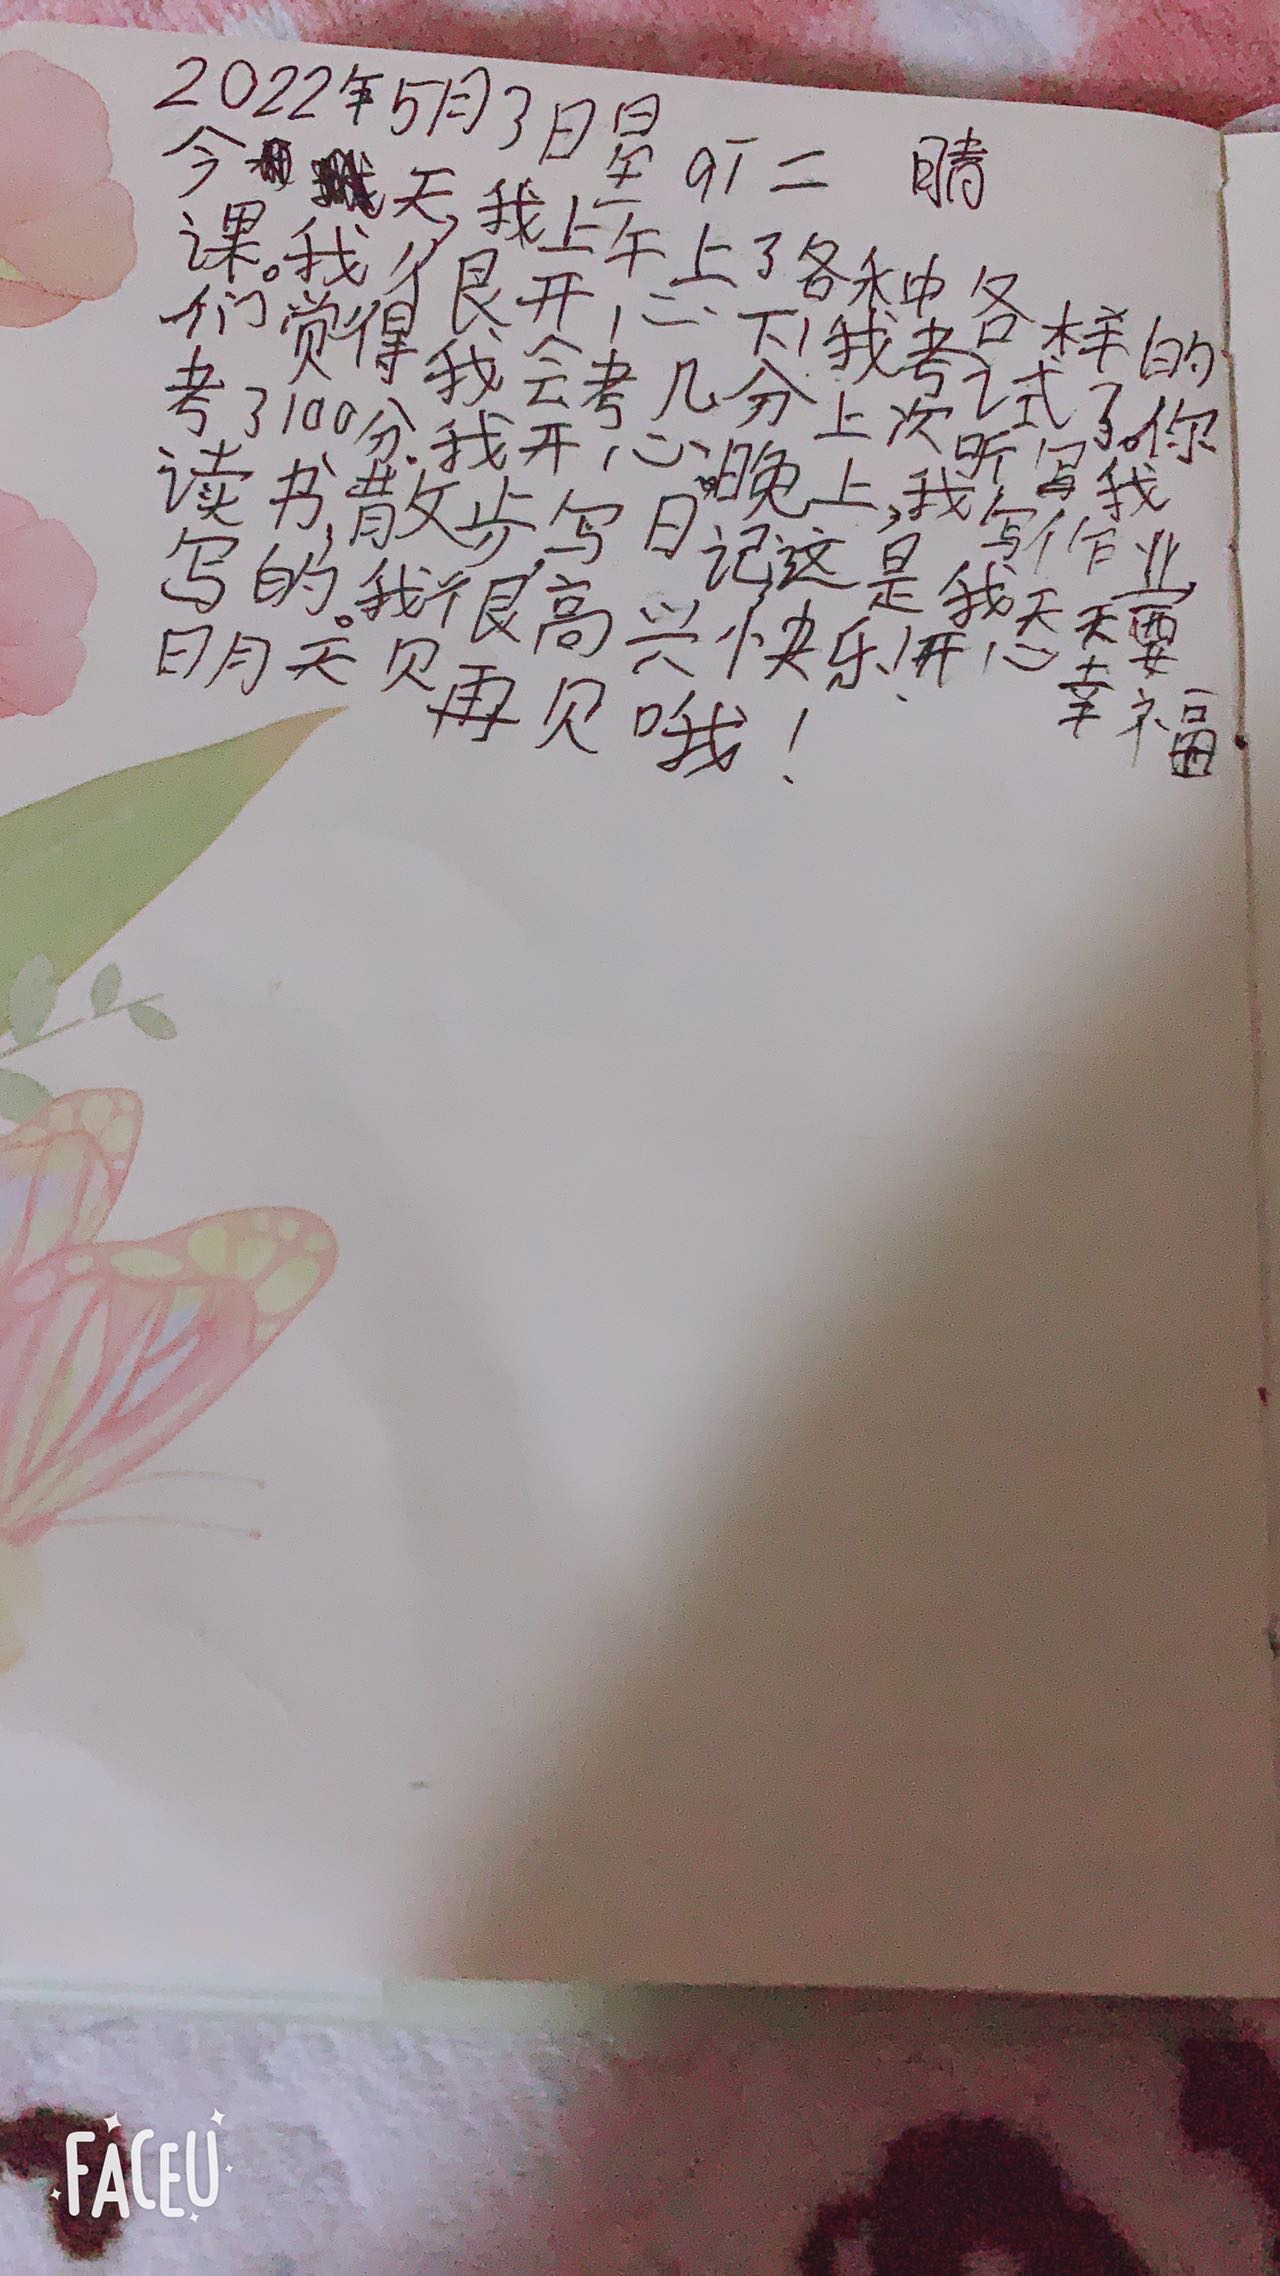 2022年5月3日星期二 晴
今天,我上午上了各种各样的
课。我很开心、下,我考试了。你
们觉得我会考几分上次听写我
考了100分.我开心、晚上,我写作业,
读书,散步,写日记,这是我天天要
写的。我很高兴快乐!开心幸福
明天见再见哦!
FACEU